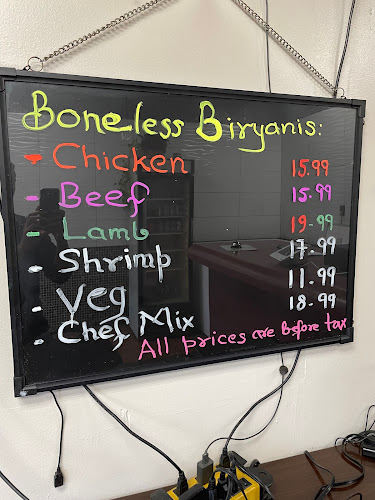 Boneless Biryanis:
- Chicken 15.99
- Beef 15.99
- Lamb 19.99
- Shrimp 17.99
- Veg 11.99
- Chef Mix 18.99
All prices are before tax